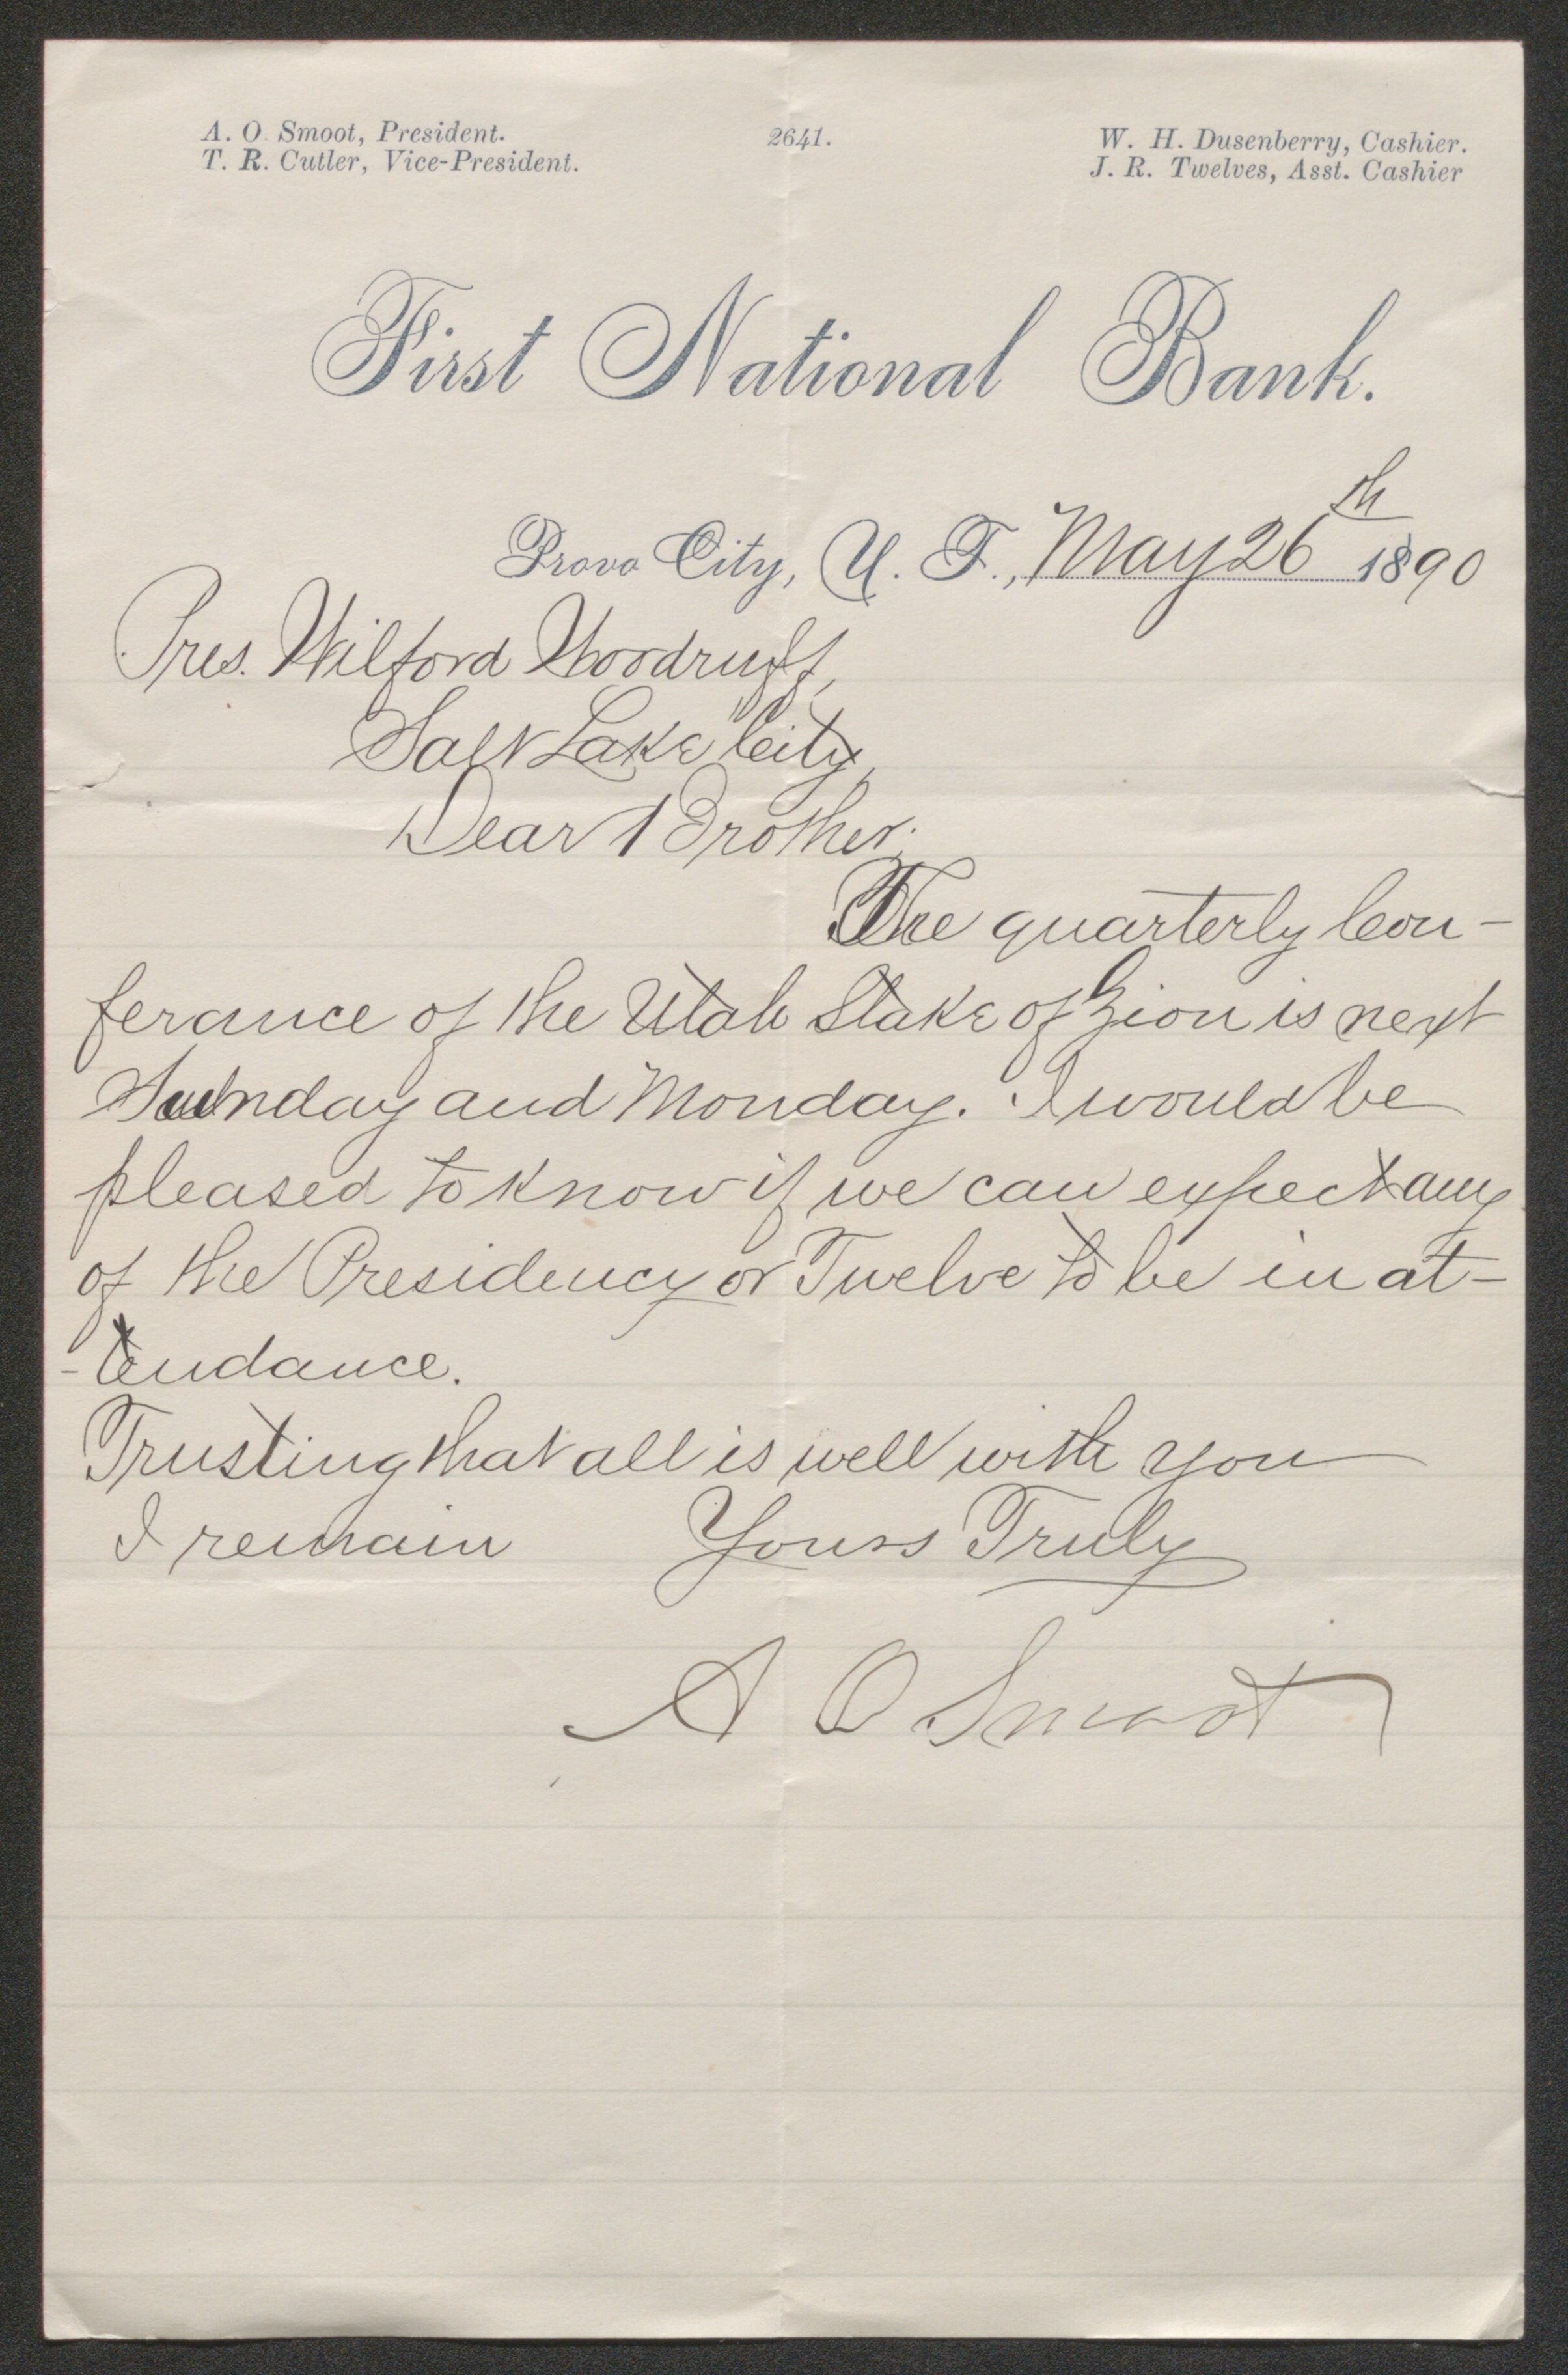 A. O. Smoot, President.
T. R. Cutler, Vice-President.
2641.
W. H. Dusenberry, Cashier.
J. R. Twelves, Asst. Cashier
First National Bank.
Provo City, U. T., May 26th 1890
Pres. Wilford Woodruff,
Salt Lake City,
Dear Brother;
The quarterly Con-
ferance of the Utah Stake of Zion is next
Sunday and Monday. I would be
pleased to know if we can expect any
of the Presidency or Twelve to be in at-
-tendance.
Trusting that all is well with you
I remain Yours Truly
A O Smoot